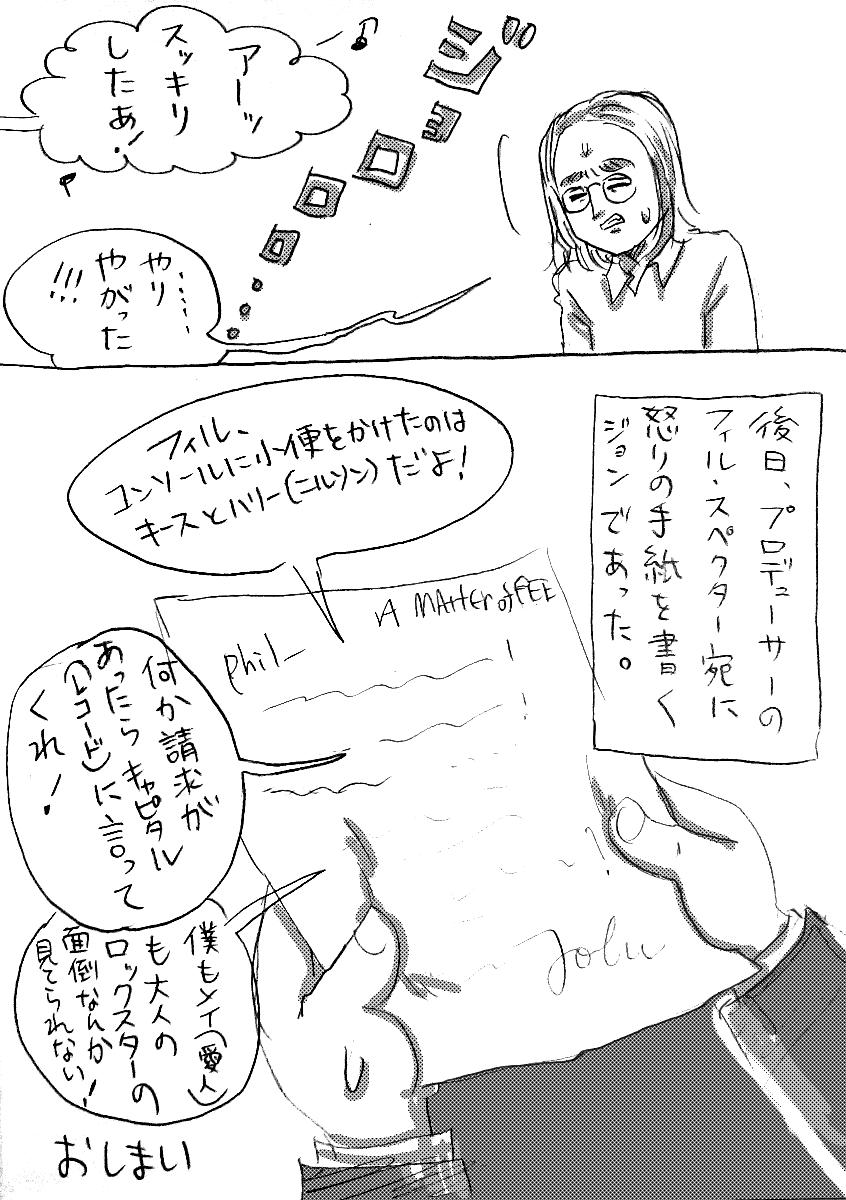 ジョロロロ・・・
アーッ
スッキリ
したあ!
……やり
やがった
!!!
後日、プロデューサーの
フィル・スペクター宛に
怒りの手紙を書く
ジョンであった。
フィル、
コンソールに小便をかけたのは
キースとハリー(ニルソン)だよ!
A MAttEr of PEE
phil—
何か請求が
あったらキャピタル
(レコード)に言って
くれ!
僕もメイ(愛人)
も大人の
ロックスターの
面倒なんか
見てられない!
John
おしまい